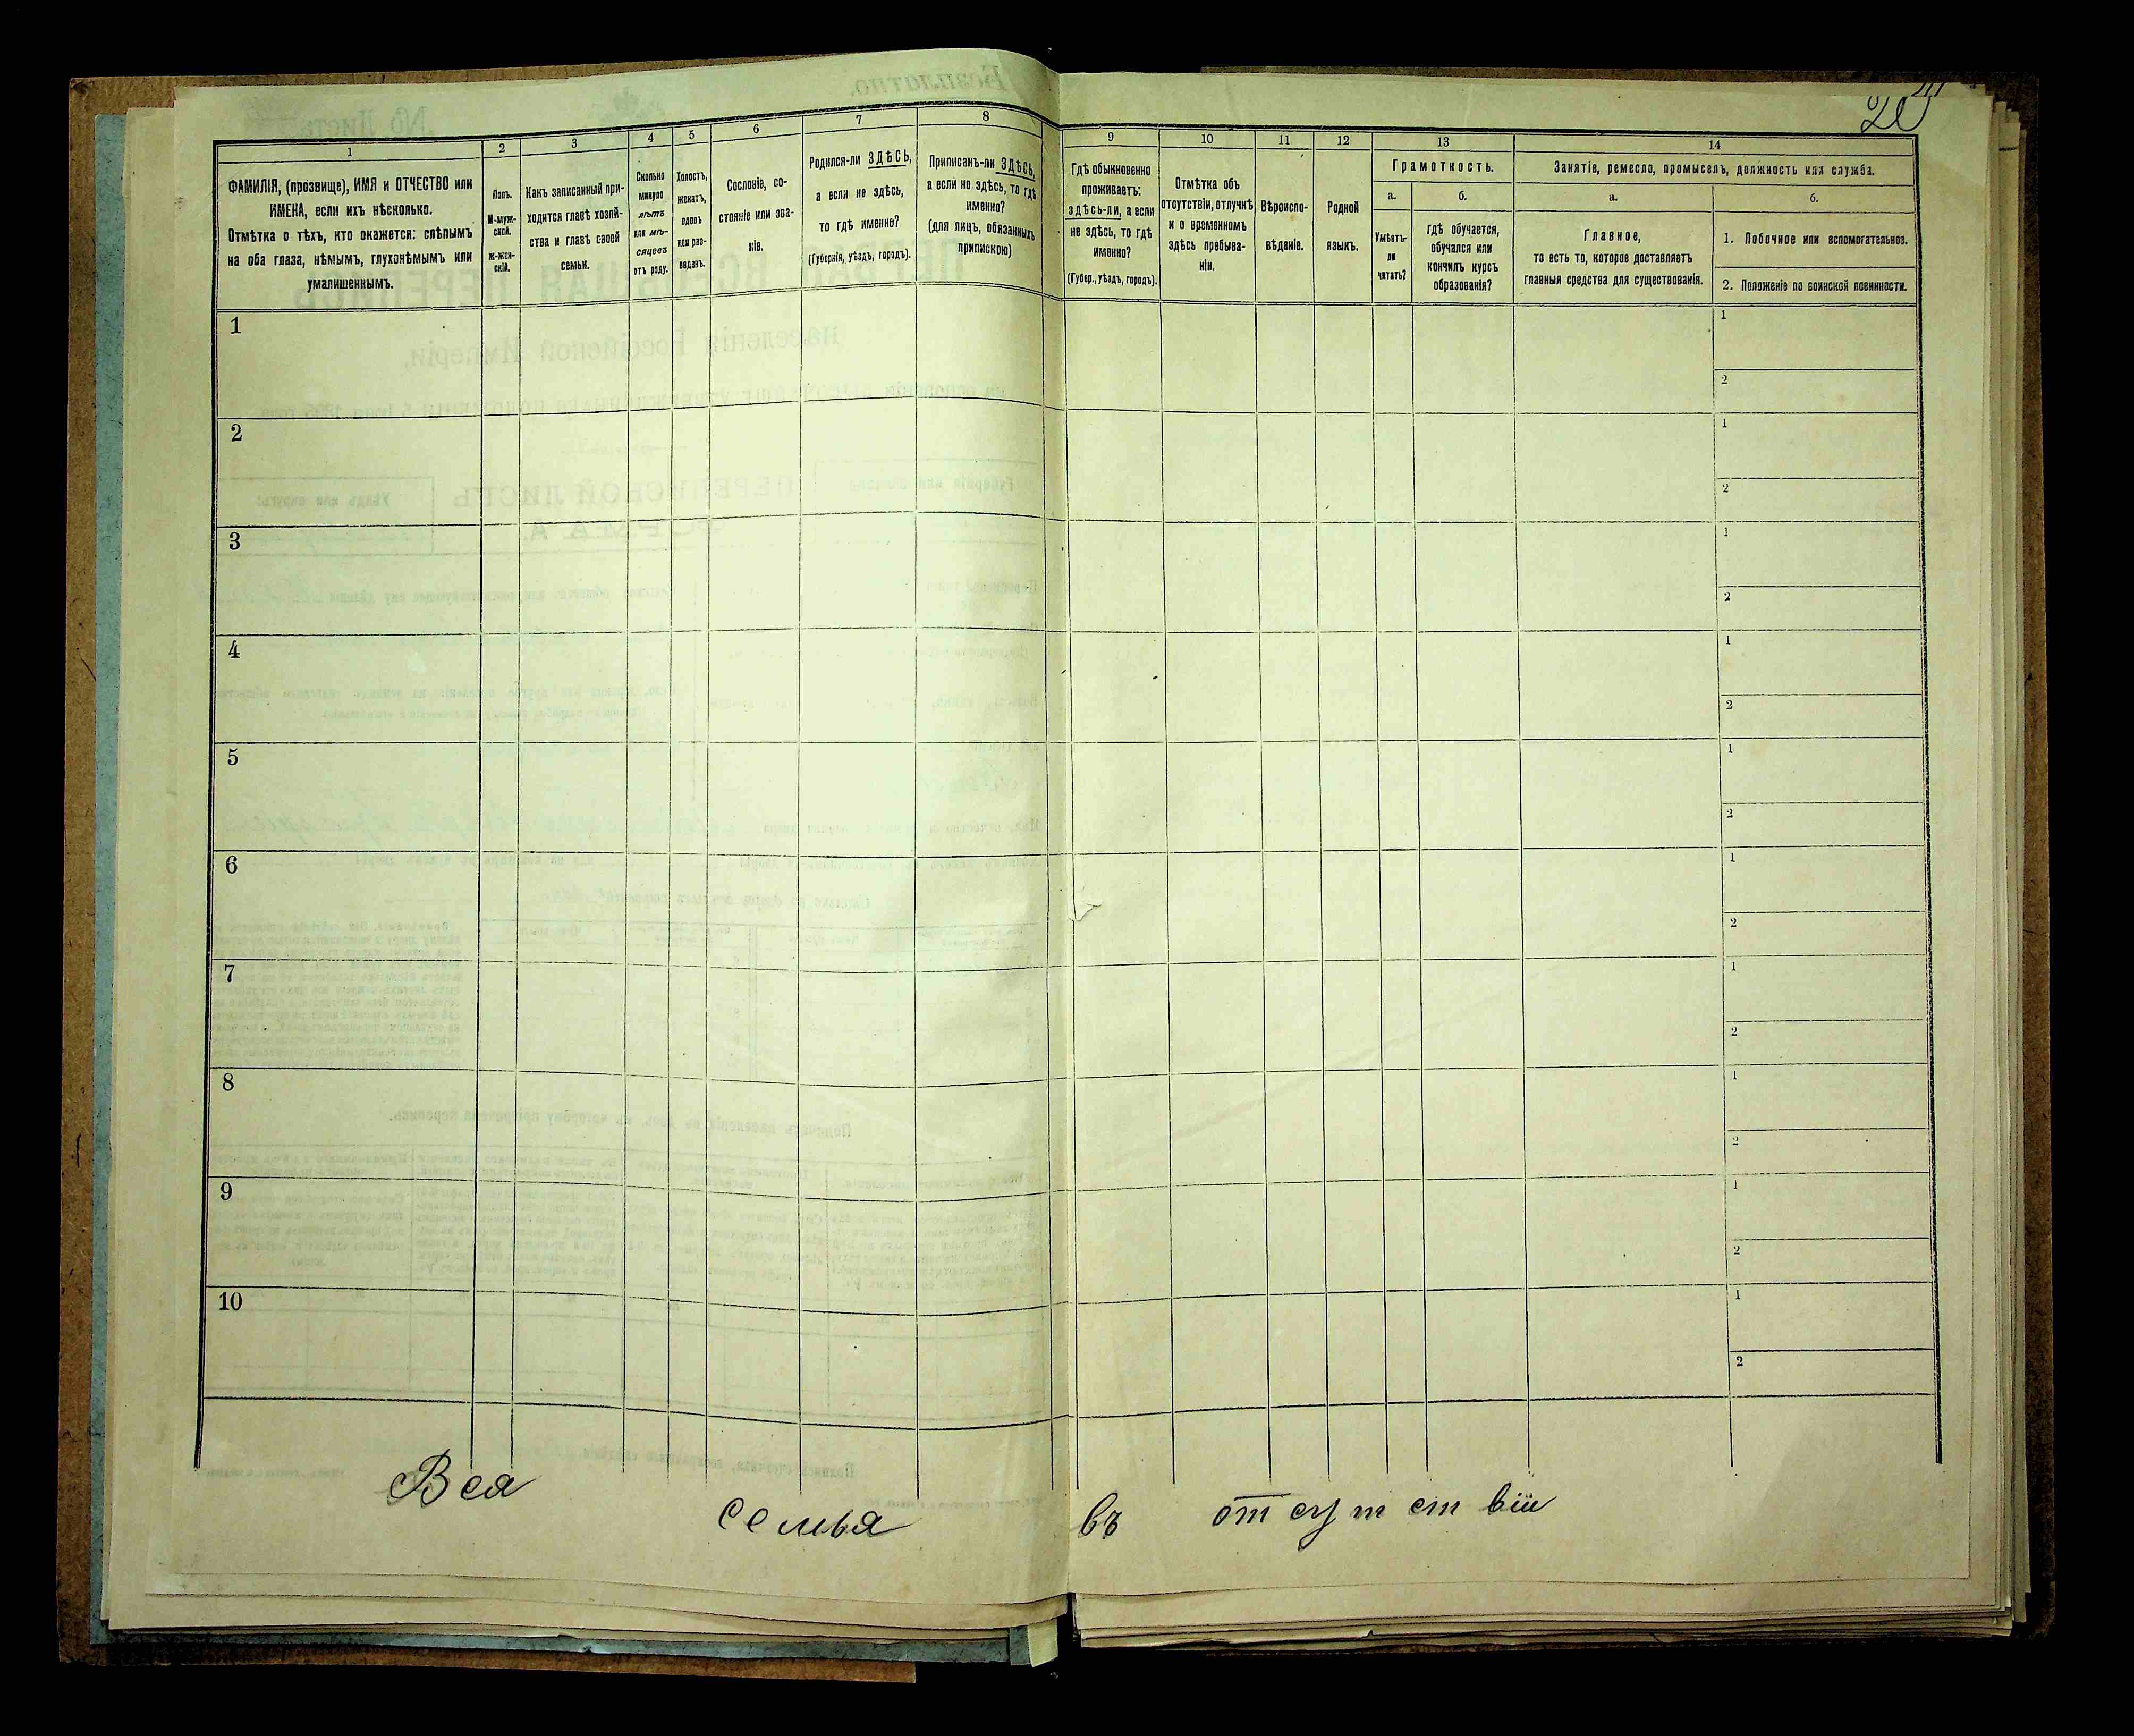 1 2 3 4 5 6 7 8 9 10 11 12 13 14
ФАМИЛІЯ, (прозвище), ИМЯ и ОТЧЕСТВО или
ИМЕНА, если ихъ нѣсколько.
Отмѣтка о тѣхъ, кто окажется: слѣпымъ
на оба глаза, нѣмымъ, глухонѣмымъ или
умалишеннымъ.
Полъ.
М-муж-
ской.
ж-жен-
скій.
Какъ записанный при-
ходится главѣ хозяй-
ства и главѣ своей
семьи.
Сколько
минуло
лѣтъ
или мѣ-
сяцевъ
отъ роду.
Холостъ,
женатъ,
вдовъ
или раз-
веденъ.
Сословіе, со-
стояніе или зва-
ніе.
Родился-ли ЗДѢСЬ,
а если не здѣсь,
то гдѣ именно?
(Губернія, уѣздъ, городъ).
Приписанъ-ли ЗДѢСЬ,
а если не здѣсь, то гдѣ
именно?
(для лицъ, обязанныхъ
припискою)
Гдѣ обыкновенно
проживаетъ:
здѣсь-ли, а если
не здѣсь, то гдѣ
именно?
(Губер., уѣздъ, городъ).
Отмѣтка объ
отсутствіи, отлучкѣ
и о временномъ
здѣсь пребыва-
ніи.
Вѣроиспо-
вѣданіе.
Родной
языкъ.
Грамотность.
а.
Умѣетъ-
ли
читать?
б.
гдѣ обучается,
обучался или
кончилъ курсъ
образованія?
Занятіе, ремесло, промыселъ, должность или служба.
а.
Главное,
то есть то, которое доставляетъ
главныя средства для существованія.
б.
1. Побочное или вспомогательное.
2. Положеніе по воинской повинности.
1 1
2
2 1
2
3 1
2
4 1
2
5 1
2
6 1
2
7 1
2
8 1
2
9 1
2
10 1
2
Вся семья въ отсутствіи